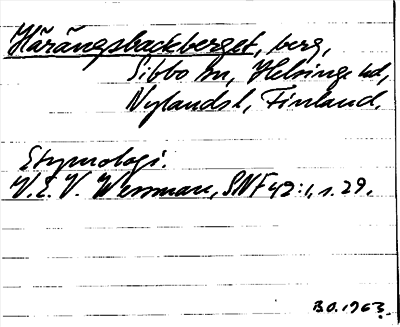 Hårängsbackberget, berg,
Sibbo sn, Helsinge hd,
Nylands l, Finland.
Etymologi.
V.E.V. Wessman, SNF 42:1, s. 29.
B.O. 1963.